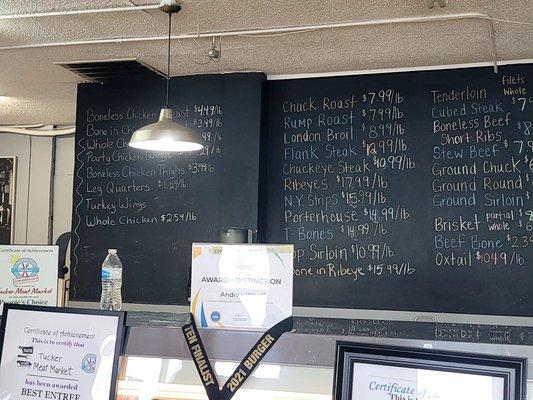 Boneless Chicken Breast $4.49/lb
Bone in
Whole
Party Chicken Wings
Boneless Chicken Thighs $3.99/lb
Leg Quarters $1.29/lb
Turkey Wings
Whole Chicken $2.59/lb
Chuck Roast $7.99/lb
Rump Roast $7.99/lb
London Broil $8.99/lb
Flank Steak $12.99/lb
Chuckeye Steak $10.99/lb
Ribeyes $17.99/lb
N.Y. Strips $15.99/lb
Porterhouse $14.99/lb
T-Bones $14.99/lb
Top Sirloin $10.99/lb
Bone in Ribeye $15.99/lb
Tenderloin filets Whole
Cubed Steak $7
Boneless Beef
Short Ribs
Stew Beef $7
Ground Chuck
Ground Round
Ground Sirloin
Brisket partial whole
Beef Bone $2.39
Oxtail $10.49/lb
Certificate of Achievement
Tucker Meat Market
People's Choice
AWARD OF DISTINCTION
TEN FINALIST
2021 BURGER
Certificate of Achievement
This is to certify that
Tucker
Meat Market
has been awarded
BEST ENTREE
Certificate of
This is